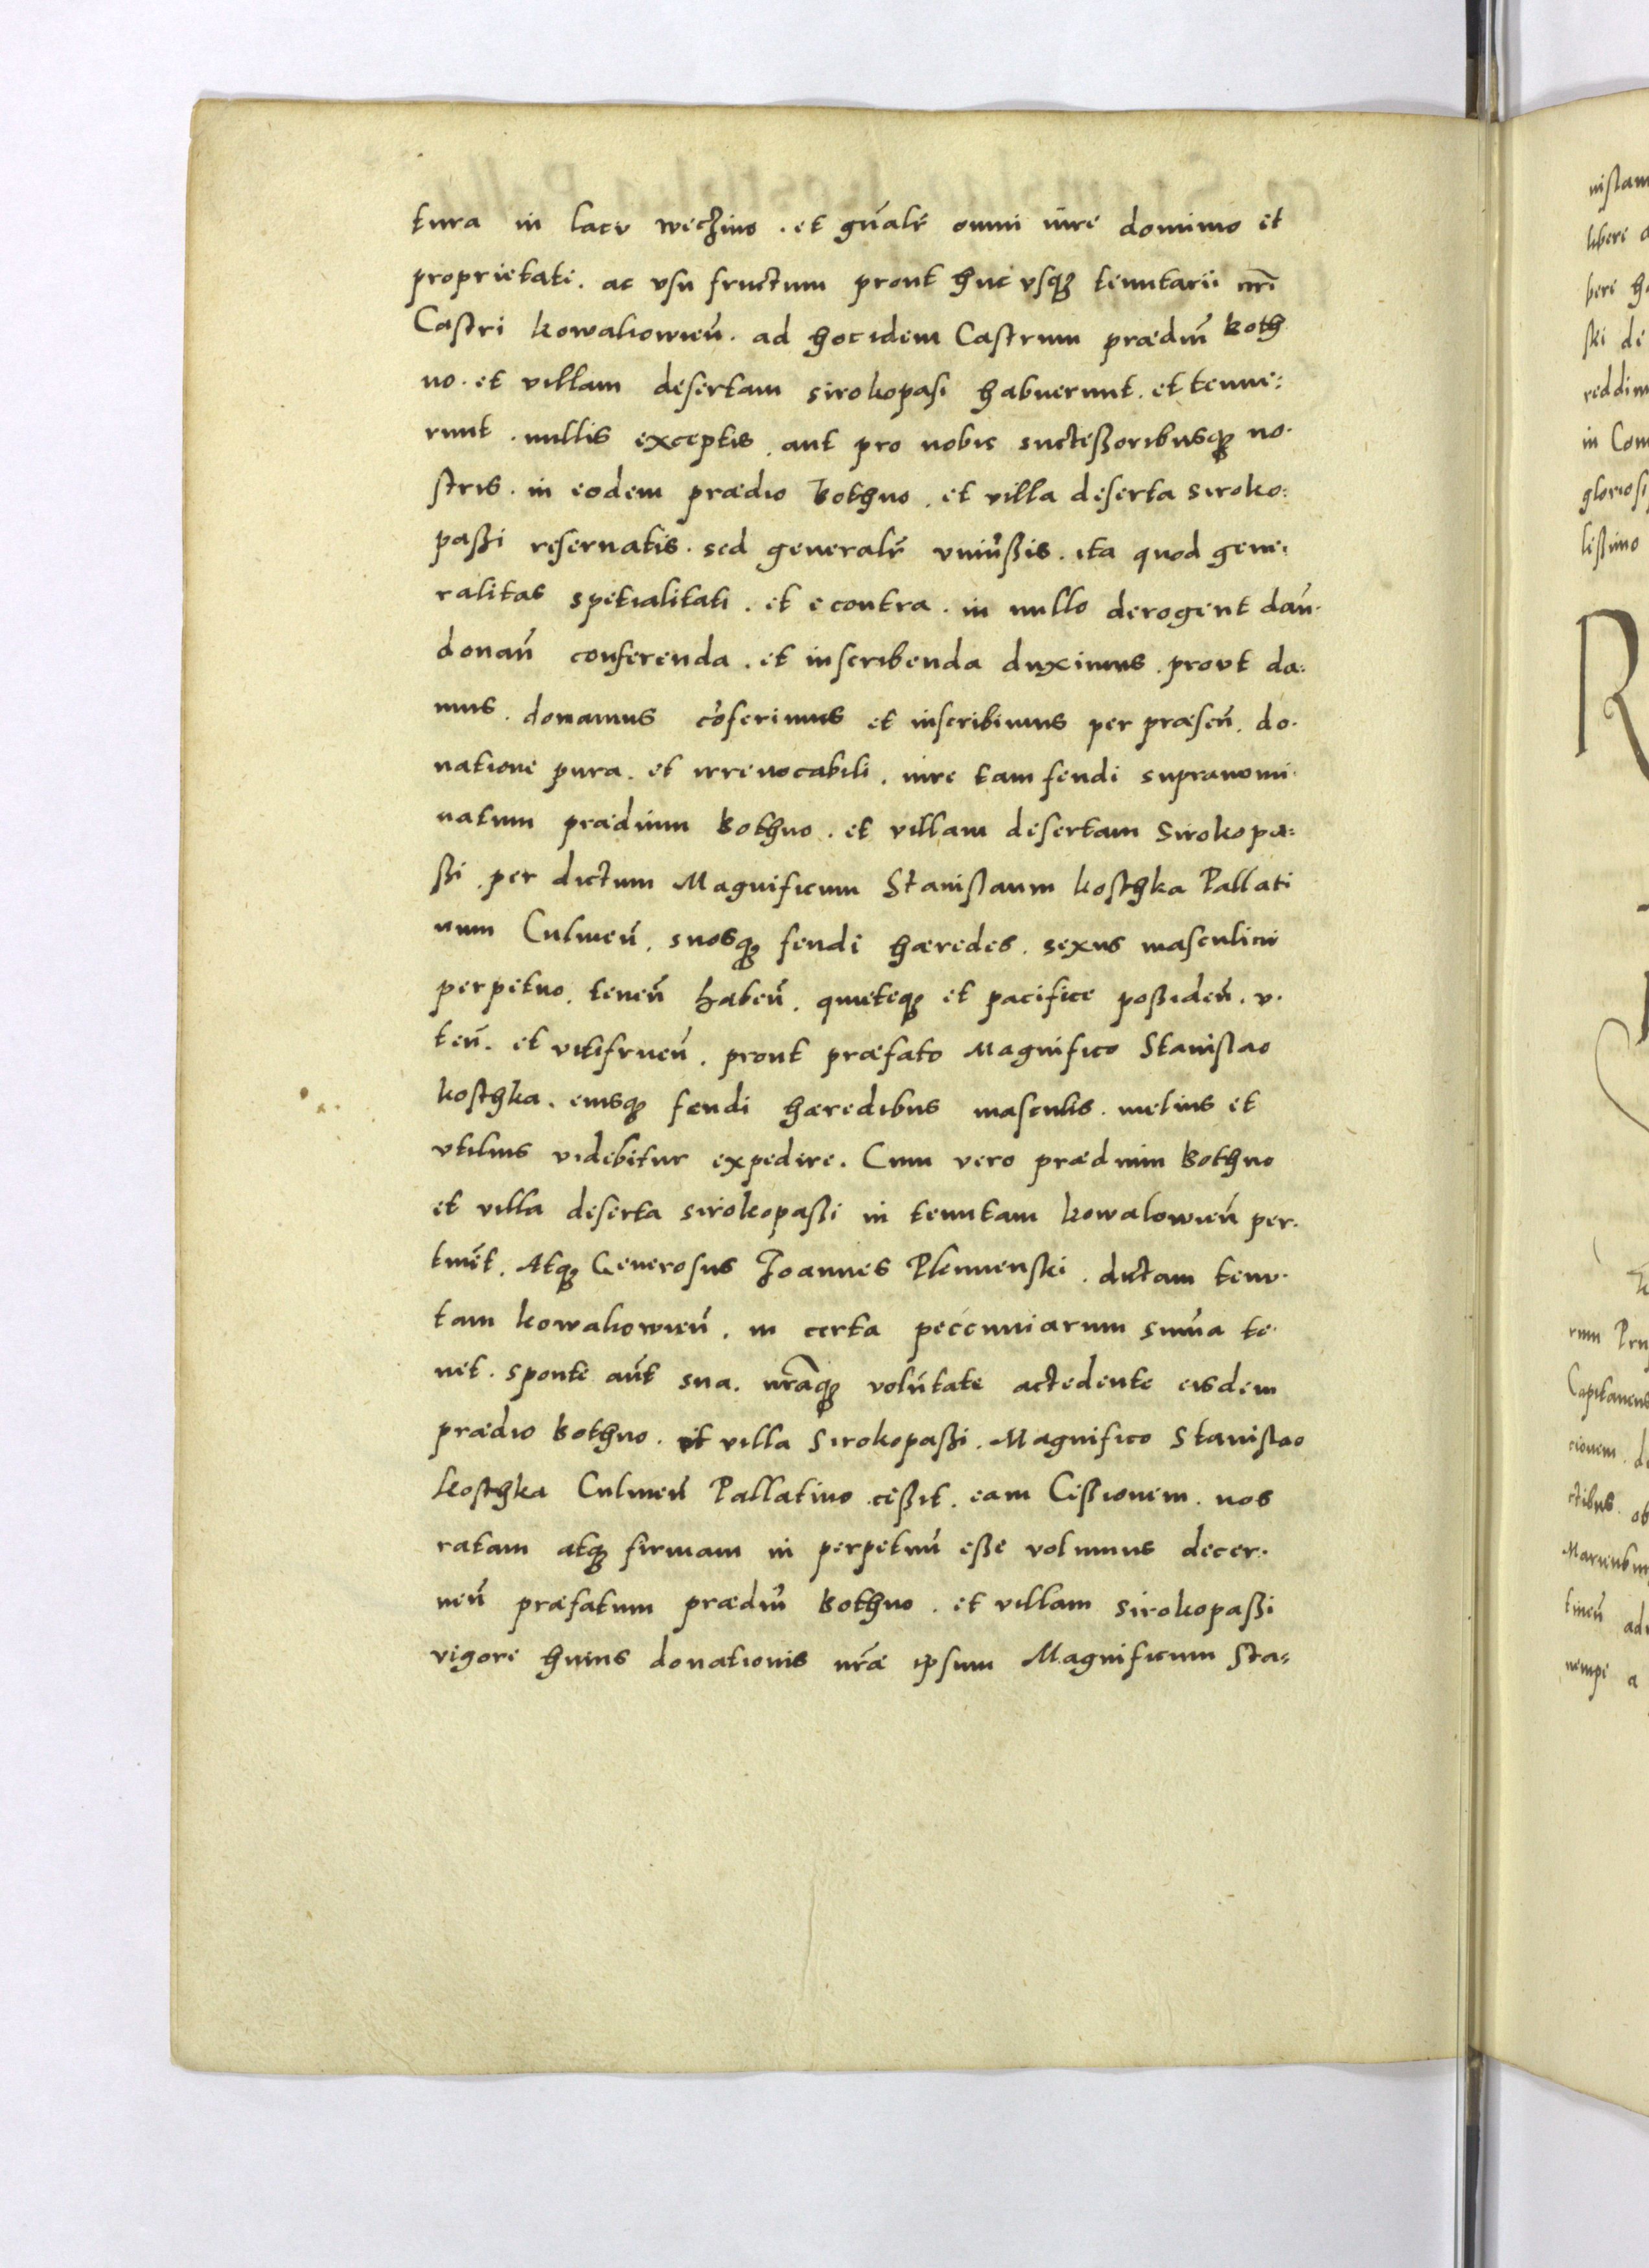 tura in lacu weczino . et gn̄alr̄ omni iure dominio et
proprietate . ac vsu fructum prout huc vsqꝫ tenutarii nr̄i
Castri kowaliowien̄ . ad hoc idem Castrum prædiu̅ Both
no . et villam desertam sirokopasi habuerunt . et tenue:
runt . nullis exceptis . aut pro nobis successoribusqꝫ no-
stris . in eodem prædio Bothno . et villa deserta siroko:
paßi reseruatis . sed generalr̄ vniu̅ßis . ita quod gene:
ralitas spetialitati . et e contra . in nullo derogent dan̄.
donan̄ conferenda . et inscribenda duximus . prout da:
mus . donamus co̅ferimus et inscribimus per præsen̄ . do-
natione pura . et irreuocabili . iure tam feudi supranomi-
natum prædium Bothno . et villam desertam Sirokopa:
ßi . per dictum Magnificum Stanislaum koschka Pallati
num Culmen̄ . suosqꝫ feudi hæredes . sexus masculini
perpetuo . tenen̄ haben̄ . quieteqꝫ et pacifice poßiden̄ . v-
ten̄ . et vtifruen̄ . prout præfato Magnifico Stanislao
koschka . eiusqꝫ feudi hæredibus masculis . melius et
vtilius videbitur expedire . Cum vero prædium Bothno
et villa deserta sirokopaßi in tenutam kowalowien̄ per-
tine̅t . Atqꝫ Generosus Joannes Plemienski . dictam tenu-
tam kowaliowien̄ . in certa pecuniarum sum̅a te-
net . sponte aūt sua . nr̄aqꝫ volu̅tate accedente eisdem
prædio Bothno . et villa Sirokopaßi . Magnifico Stanislao
koschka Culmen̄ Pallatino . ceßit . eam Ceßionem . nos
ratam atqꝫ firmam in perpetuu̅ eße volumus decer-
nen̄ præfatum prædiu̅ Bothno . et villam sirokopaßi
vigore huius donationis nr̄æ ipsum Magnificum Sta=